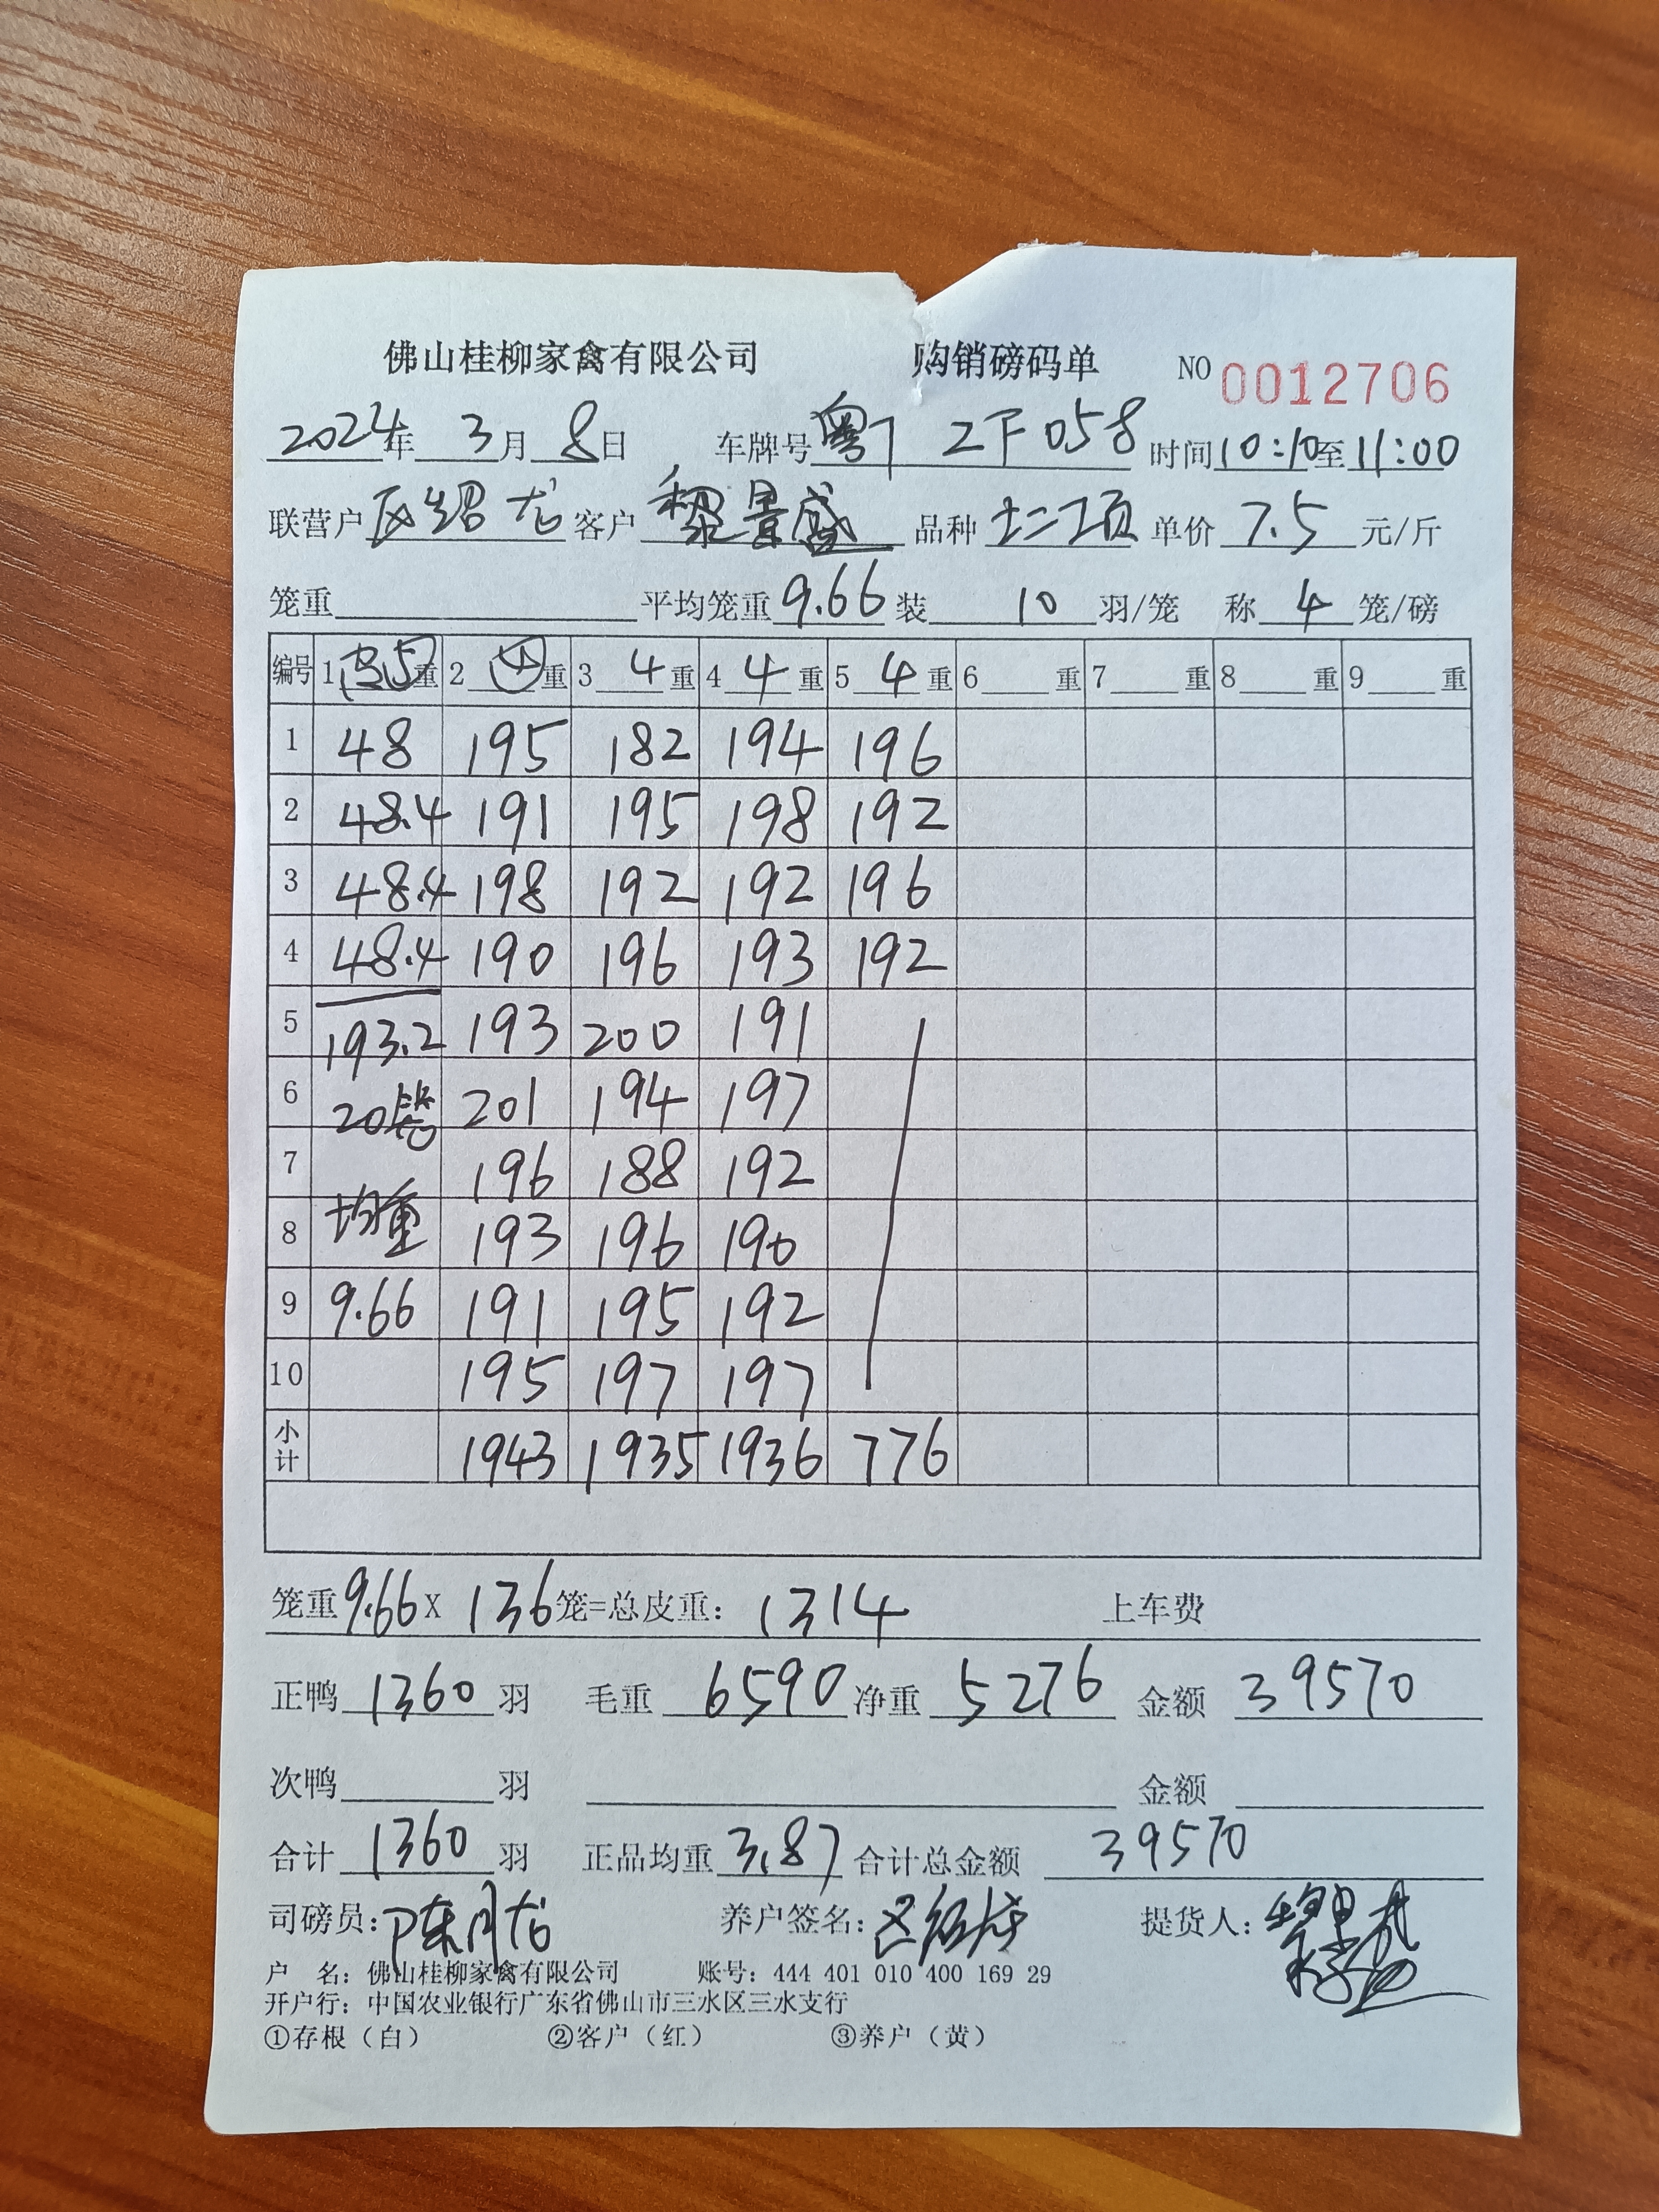 佛山桂柳家禽有限公司 购销磅码单 NO 0012706
2024年 3月 8日 车牌号 粤 2F058 时间 10:10至 11:00
联营户 区绍龙 客户 黎景盛 品种 单价 7.5 元/斤
笼重 平均笼重 9.66 装 10 羽/笼 称 4 笼/磅
编号 1 5 重 2 4 重 3 4 重 4 4 重 5 4 重 6 重 7 重 8 重 9 重
1 48 195 182 194 196
2 48.4 191 195 198 192
3 48.4 198 192 192 196
4 48.4 190 196 193 192
5 193.2 193 200 191
6 20笼 201 194 197
7 196 188 192
8 均重 193 196 190
9 9.66 191 195 192
10 195 197 197
小计 1943 1935 1936 776
笼重 9.66 X 136 笼=总皮重: 1314 上车费
正鸭 1360 羽 毛重 6590 净重 5276 金额 39570
次鸭 羽 金额
合计 1360 羽 正品均重 3.87 合计总金额 39570
司磅员: 陈月龙 养户签名: 区绍龙 提货人:
户 名: 佛山桂柳家禽有限公司 账号: 444 401 010 400 169 29
开户行: 中国农业银行广东省佛山市三水区三水支行
①存根（白） ②客户（红） ③养户（黄）